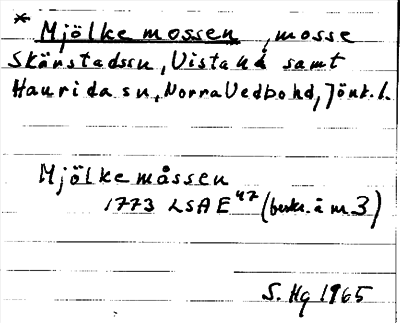 * Mjölkemossen, mosse
Skärstadssn, Vista hd samt
Haurida sn, Norra Vedbo hd, Jönk. l.
Mjölkemåssen
1773 LSA E47 (beskr. å m 3)
S. Hg 1965